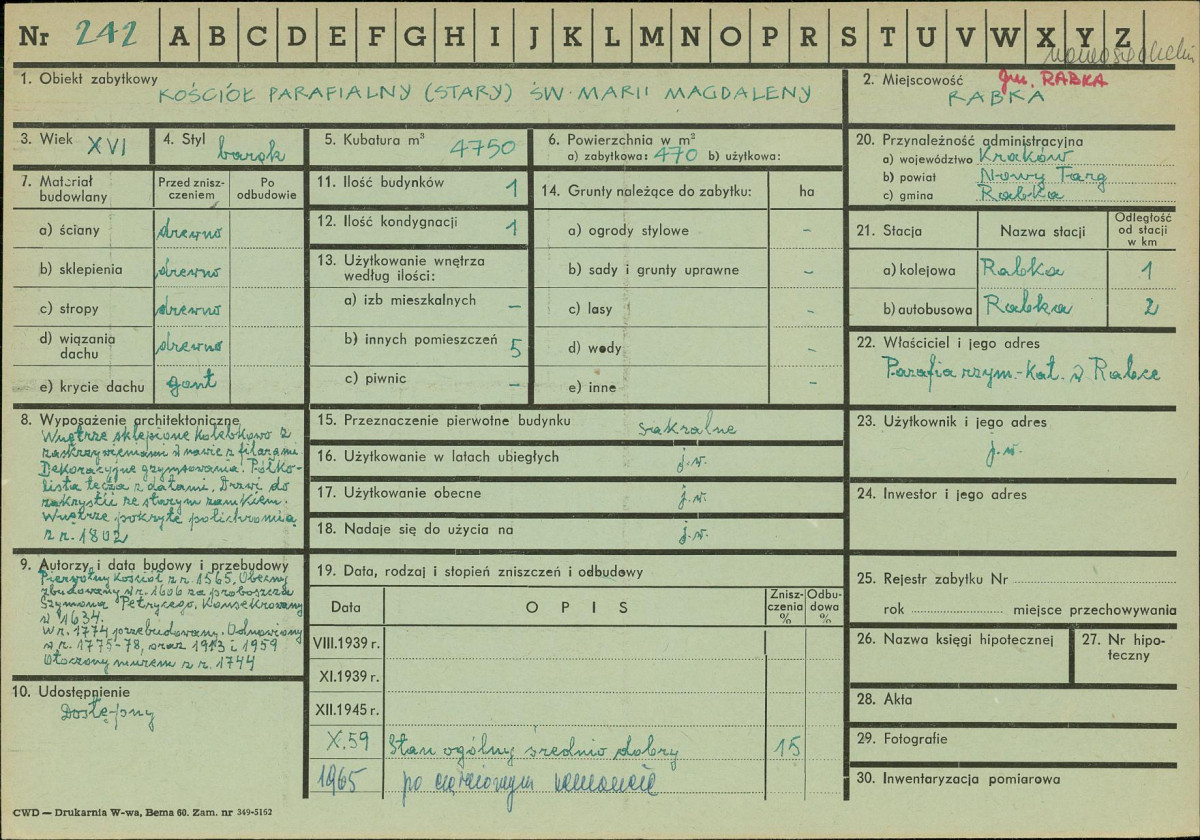 Nr 242 A B C D E F G H I J K L M N O P R S T U V W X Y Z
1. Obiekt zabytkowy
KOŚCIÓŁ PARAFIALNY (STARY) ŚW. MARII MAGDALENY
2. Miejscowość gm. RABKA
RABKA
3. Wiek XVI
4. Styl barok
5. Kubatura m³ 4750
6. Powierzchnia w m²
a) zabytkowa: 470 b) użytkowa:
20. Przynależność administracyjna
a) województwo Kraków
b) powiat Nowy Targ
c) gmina Rabka
7. Materiał budowlany
Przed zniszczeniem
Po odbudowie
a) ściany drewno
b) sklepienia drewno
c) stropy drewno
d) wiązania dachu drewno
e) krycie dachu gont
11. Ilość budynków 1
12. Ilość kondygnacji 1
13. Użytkowanie wnętrza
według ilości:
a) izb mieszkalnych –
b) innych pomieszczeń 5
c) piwnic –
14. Grunty należące do zabytku: ha
a) ogrody stylowe –
b) sady i grunty uprawne –
c) lasy –
d) wody –
e) inne –
21. Stacja Nazwa stacji
Odległość
od stacji
w km
a) kolejowa Rabka 1
b) autobusowa Rabka 2
22. Właściciel i jego adres
Parafia rzym.-kat. w Rabce
8. Wyposażenie architektoniczne
Wnętrze sklepione kolebkowo z
zaskrzynieniami w nawie z filarami
Dekoracyjne gzymsowania. Półko-
lista tęcza z datami. Drzwi do
zakrystii ze starym zamkiem.
Wnętrze pokryte polichromią
z r. 1802
15. Przeznaczenie pierwotne budynku sakralne
16. Użytkowanie w latach ubiegłych j.w.
17. Użytkowanie obecne j.w.
18. Nadaje się do użycia na j.w.
23. Użytkownik i jego adres
j.w.
24. Inwestor i jego adres
9. Autorzy i data budowy i przebudowy
Pierwotny kościół z r. 1565. Obecny
zbudowany w r. 1606 za proboszcza
Szymona Petrycego, konsekrowany
w 1634.
W r. 1774 przebudowany. Odnowiony
w r. 1775-78, oraz 1913 i 1959
Otoczony murem z r. 1744
10. Udostępnienie
Dostępny
19. Data, rodzaj i stopień zniszczeń i odbudowy
Data OPIS
Zniszczenia %
Odbudowa %
VIII.1939 r.
XI.1939 r.
XII.1945 r.
X.59 Stan ogólny średnio dobry 15
1965 po częściowym remoncie
25. Rejestr zabytku Nr
rok miejsce przechowywania
26. Nazwa księgi hipotecznej
27. Nr hipo-
teczny
28. Akta
29. Fotografie
30. Inwentaryzacja pomiarowa
CWD — Drukarnia W-wa, Bema 60. Zam. nr 349-5162